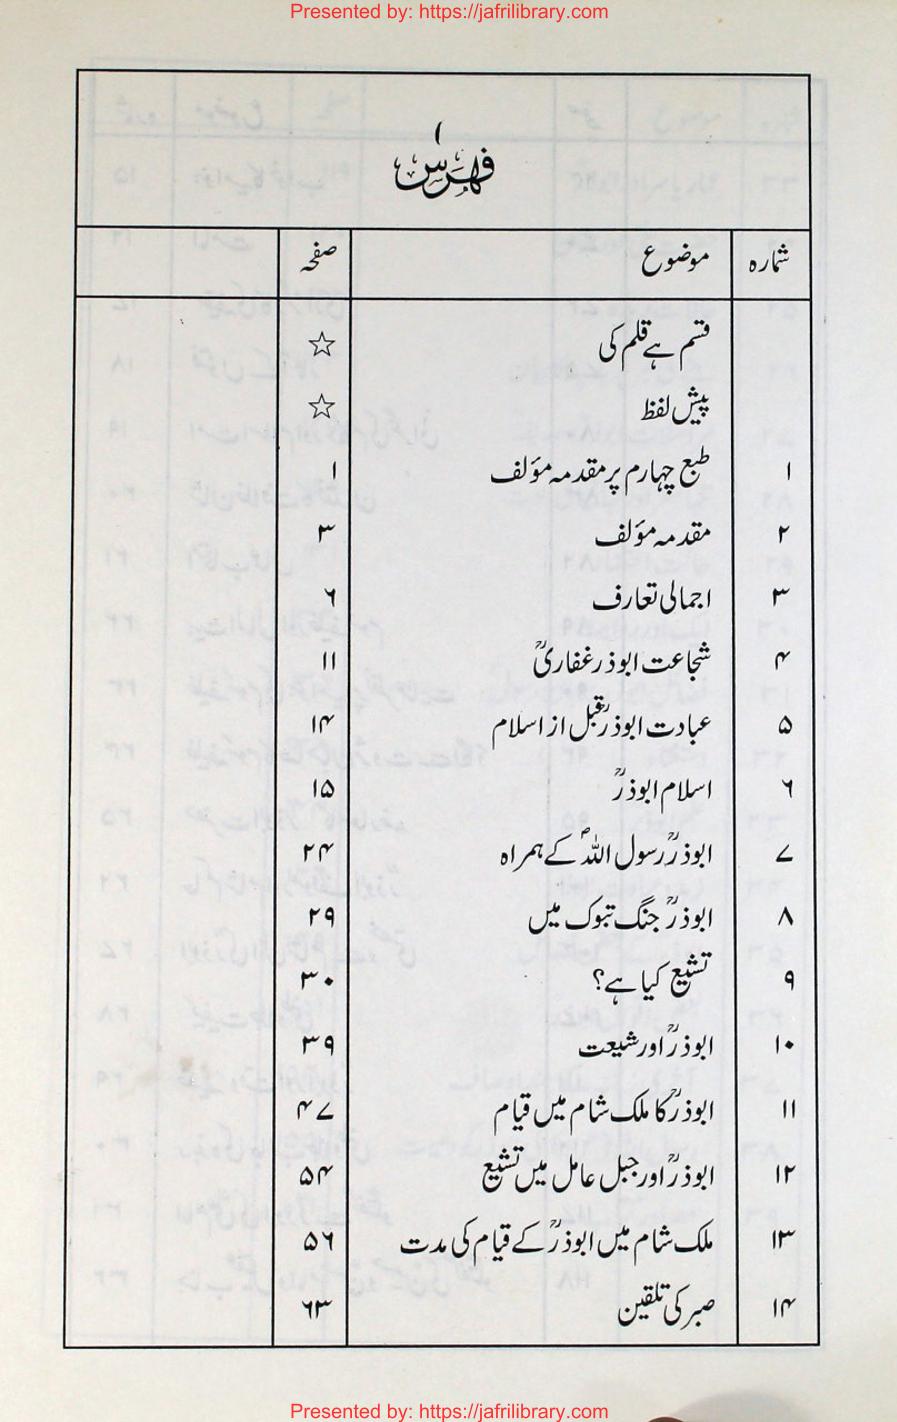 Presented by: https://jafrilibrary.com
فہرس
شمارہ موضوع صفحہ
قسم ہے قلم کی ☆
پیش لفظ ☆
۱ طبع چہارم پر مقدمہ مؤلف ۱
۲ مقدمہ مؤلف ۳
۳ اجمالی تعارف ۶
۴ شجاعت ابوذر غفاریؒ ۱۱
۵ عبادت ابوذرؒ قبل از اسلام ۱۴
۶ اسلام ابوذرؒ ۱۵
۷ ابوذرؒ رسول اللہؐ کے ہمراہ ۲۴
۸ ابوذرؒ جنگ تبوک میں ۲۹
۹ تشیع کیا ہے؟ ۳۰
۱۰ ابوذرؒ اور شیعت ۳۹
۱۱ ابوذرؒ کا ملک شام میں قیام ۴۷
۱۲ ابوذرؒ اور جبل عامل میں تشیع ۵۴
۱۳ ملک شام میں ابوذرؒ کے قیام کی مدت ۵۶
۱۴ صبر کی تلقین ۶۳
Presented by: https://jafrilibrary.com